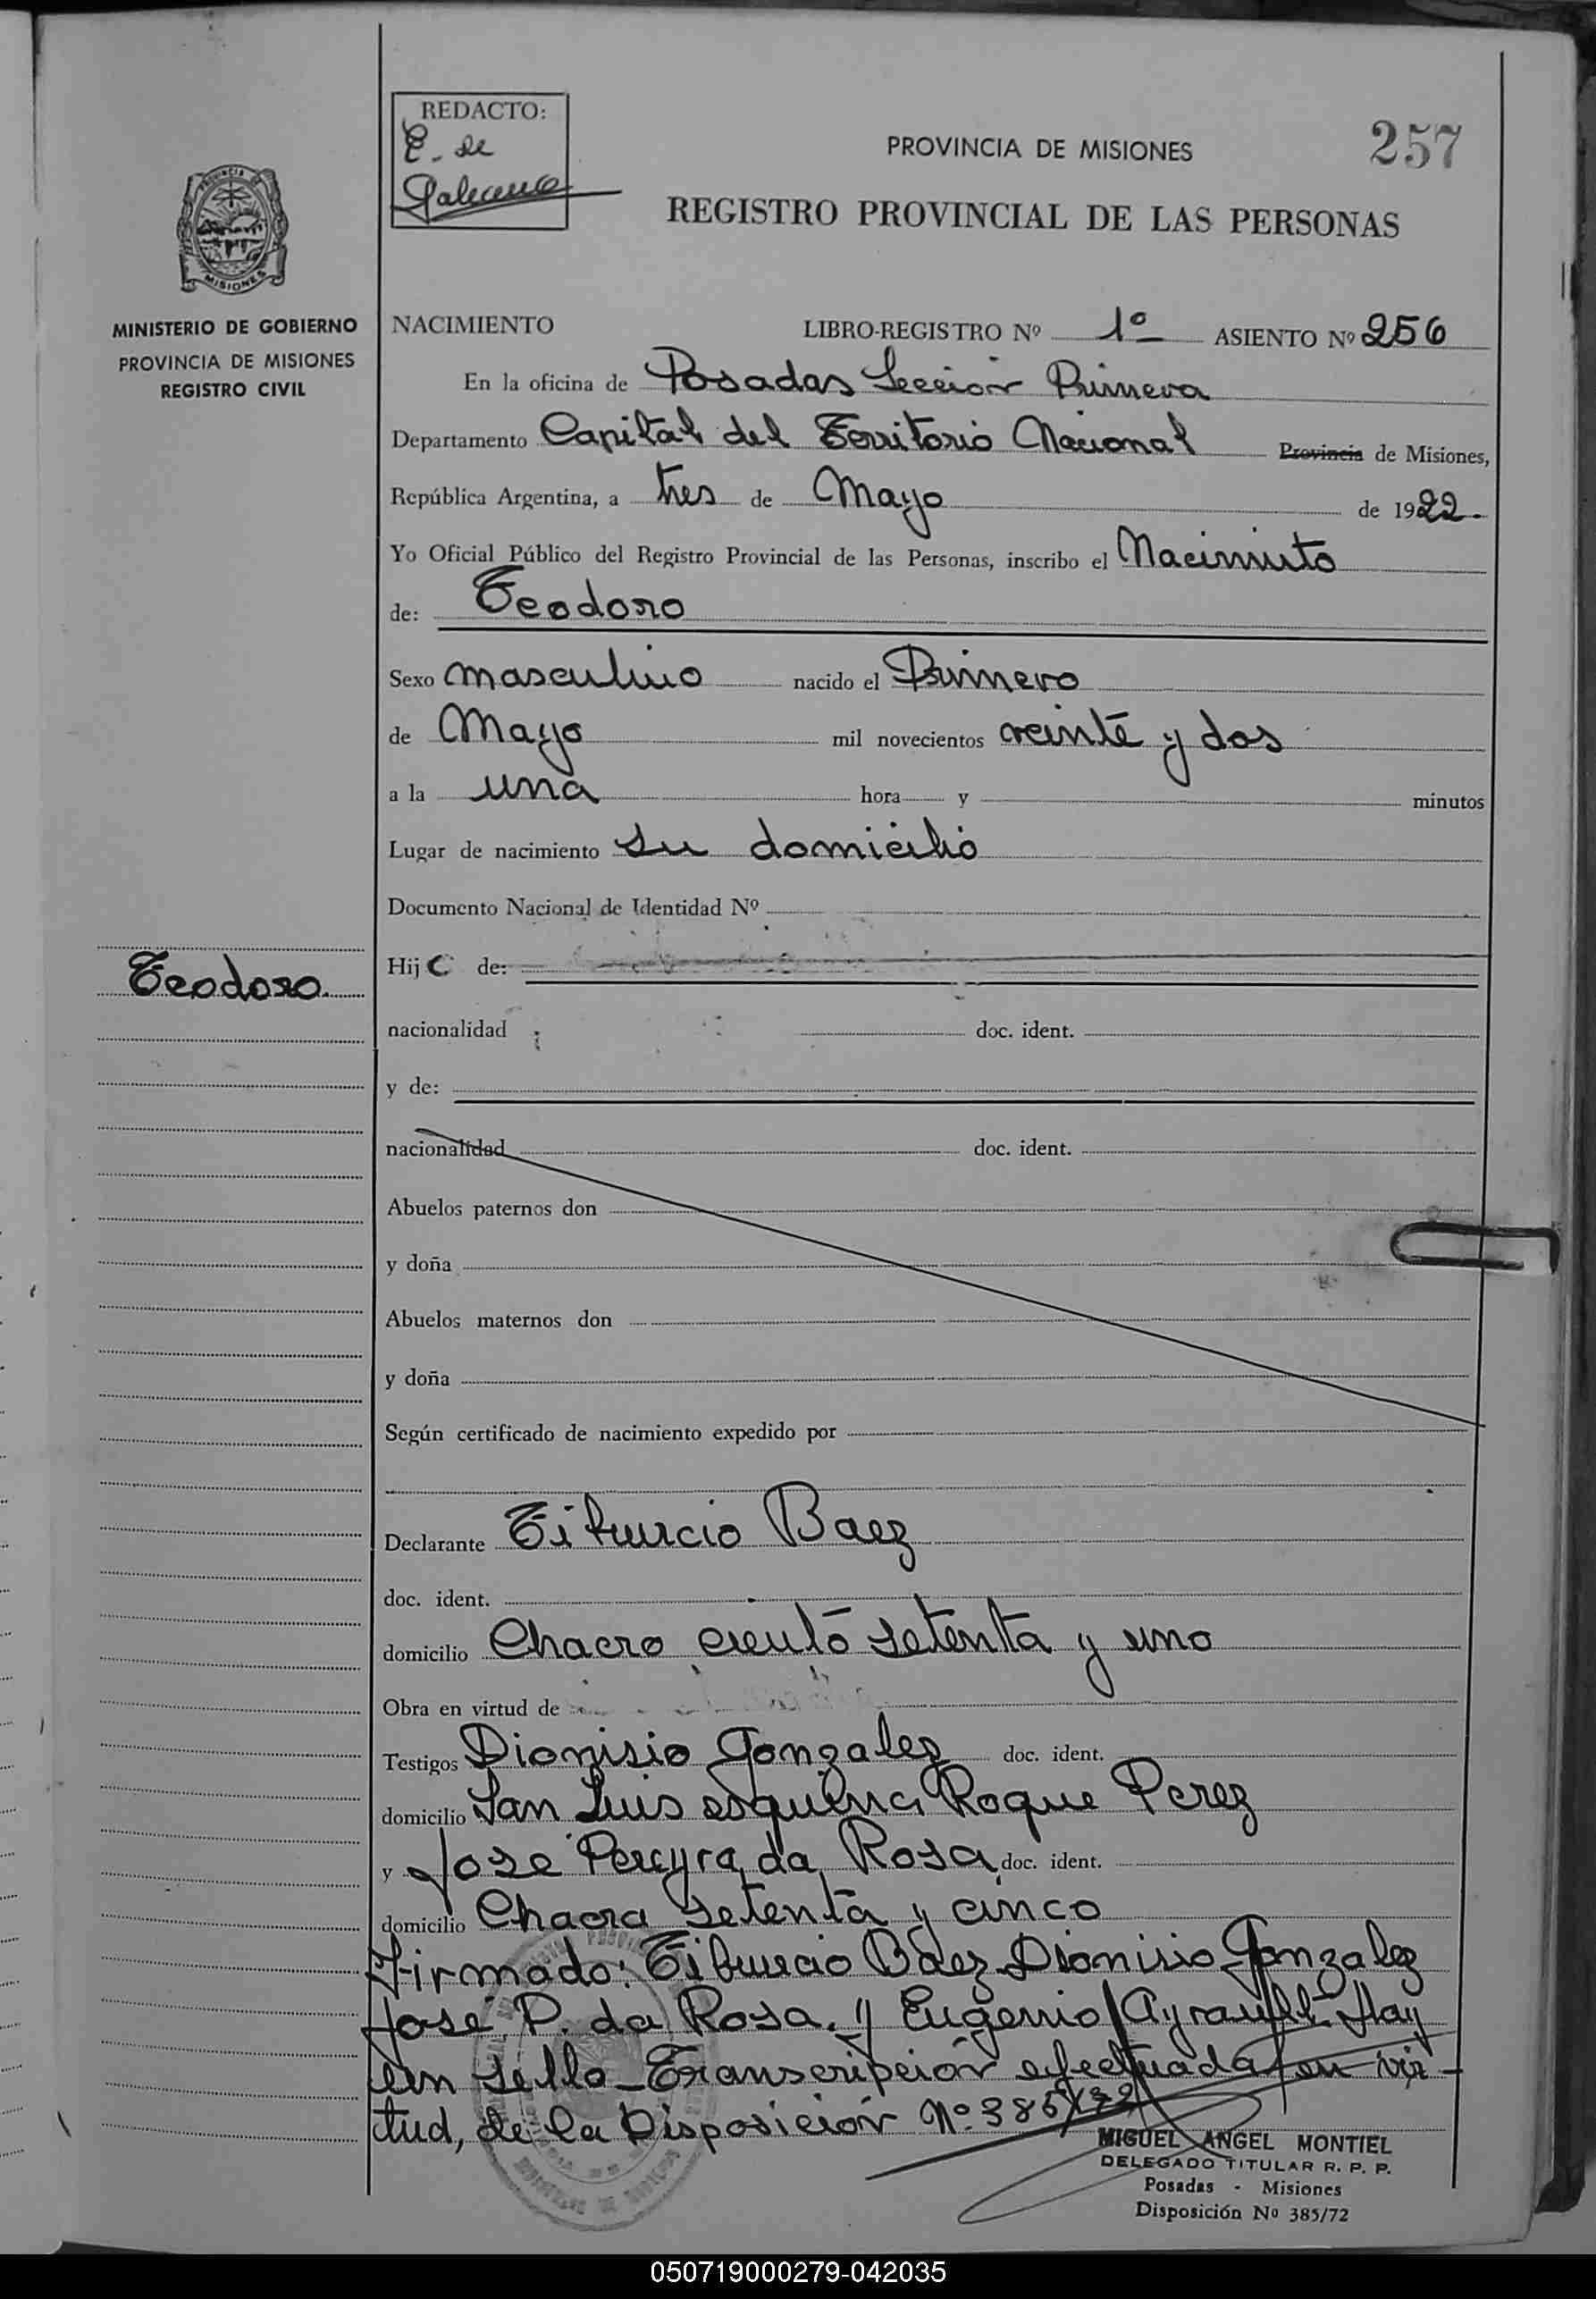 REDACTO:
E. de
Galeano
PROVINCIA DE MISIONES
257
REGISTRO PROVINCIAL DE LAS PERSONAS
MISIONES
MINISTERIO DE GOBIERNO
PROVINCIA DE MISIONES
REGISTRO CIVIL
NACIMIENTO LIBRO-REGISTRO Nº 1º ASIENTO Nº 256
En la oficina de Posadas Seccion Primera
Departamento Capital del Territorio Nacional Provincia de Misiones,
República Argentina, a tres de Mayo de 1922.
Yo Oficial Público del Registro Provincial de las Personas, inscribo el Nacimiento
de: Teodoro
Sexo masculino nacido el Primero
de Mayo mil novecientos veinte y dos
a la una hora y minutos
Lugar de nacimiento su domicilio
Documento Nacional de Identidad Nº
Teodoro.
Hij de:
nacionalidad doc. ident.
y de:
nacionalidad doc. ident.
Abuelos paternos don
y doña
Abuelos maternos don
y doña
Según certificado de nacimiento expedido por
Declarante Tiburcio Baez
doc. ident.
domicilio Chacro ciento setenta y uno
Obra en virtud de
Testigos Dionisio Gonzalez doc. ident.
domicilio San Luis esquina Roque Perez
y Jose Pereyra da Rosa doc. ident.
domicilio Chacra setenta y cinco
Firmado: Tiburcio Baez Dionisio Gonzalez
José P. da Rosa. y Eugenio Ayrault. Hay
un sello_Transcripción efectuada en vir-
tud, de la Disposición Nº 385/72
MIGUEL ANGEL MONTIEL
DELEGADO TITULAR R. P. P.
Posadas - Misiones
Disposición Nº 385/72
050719000279-042035